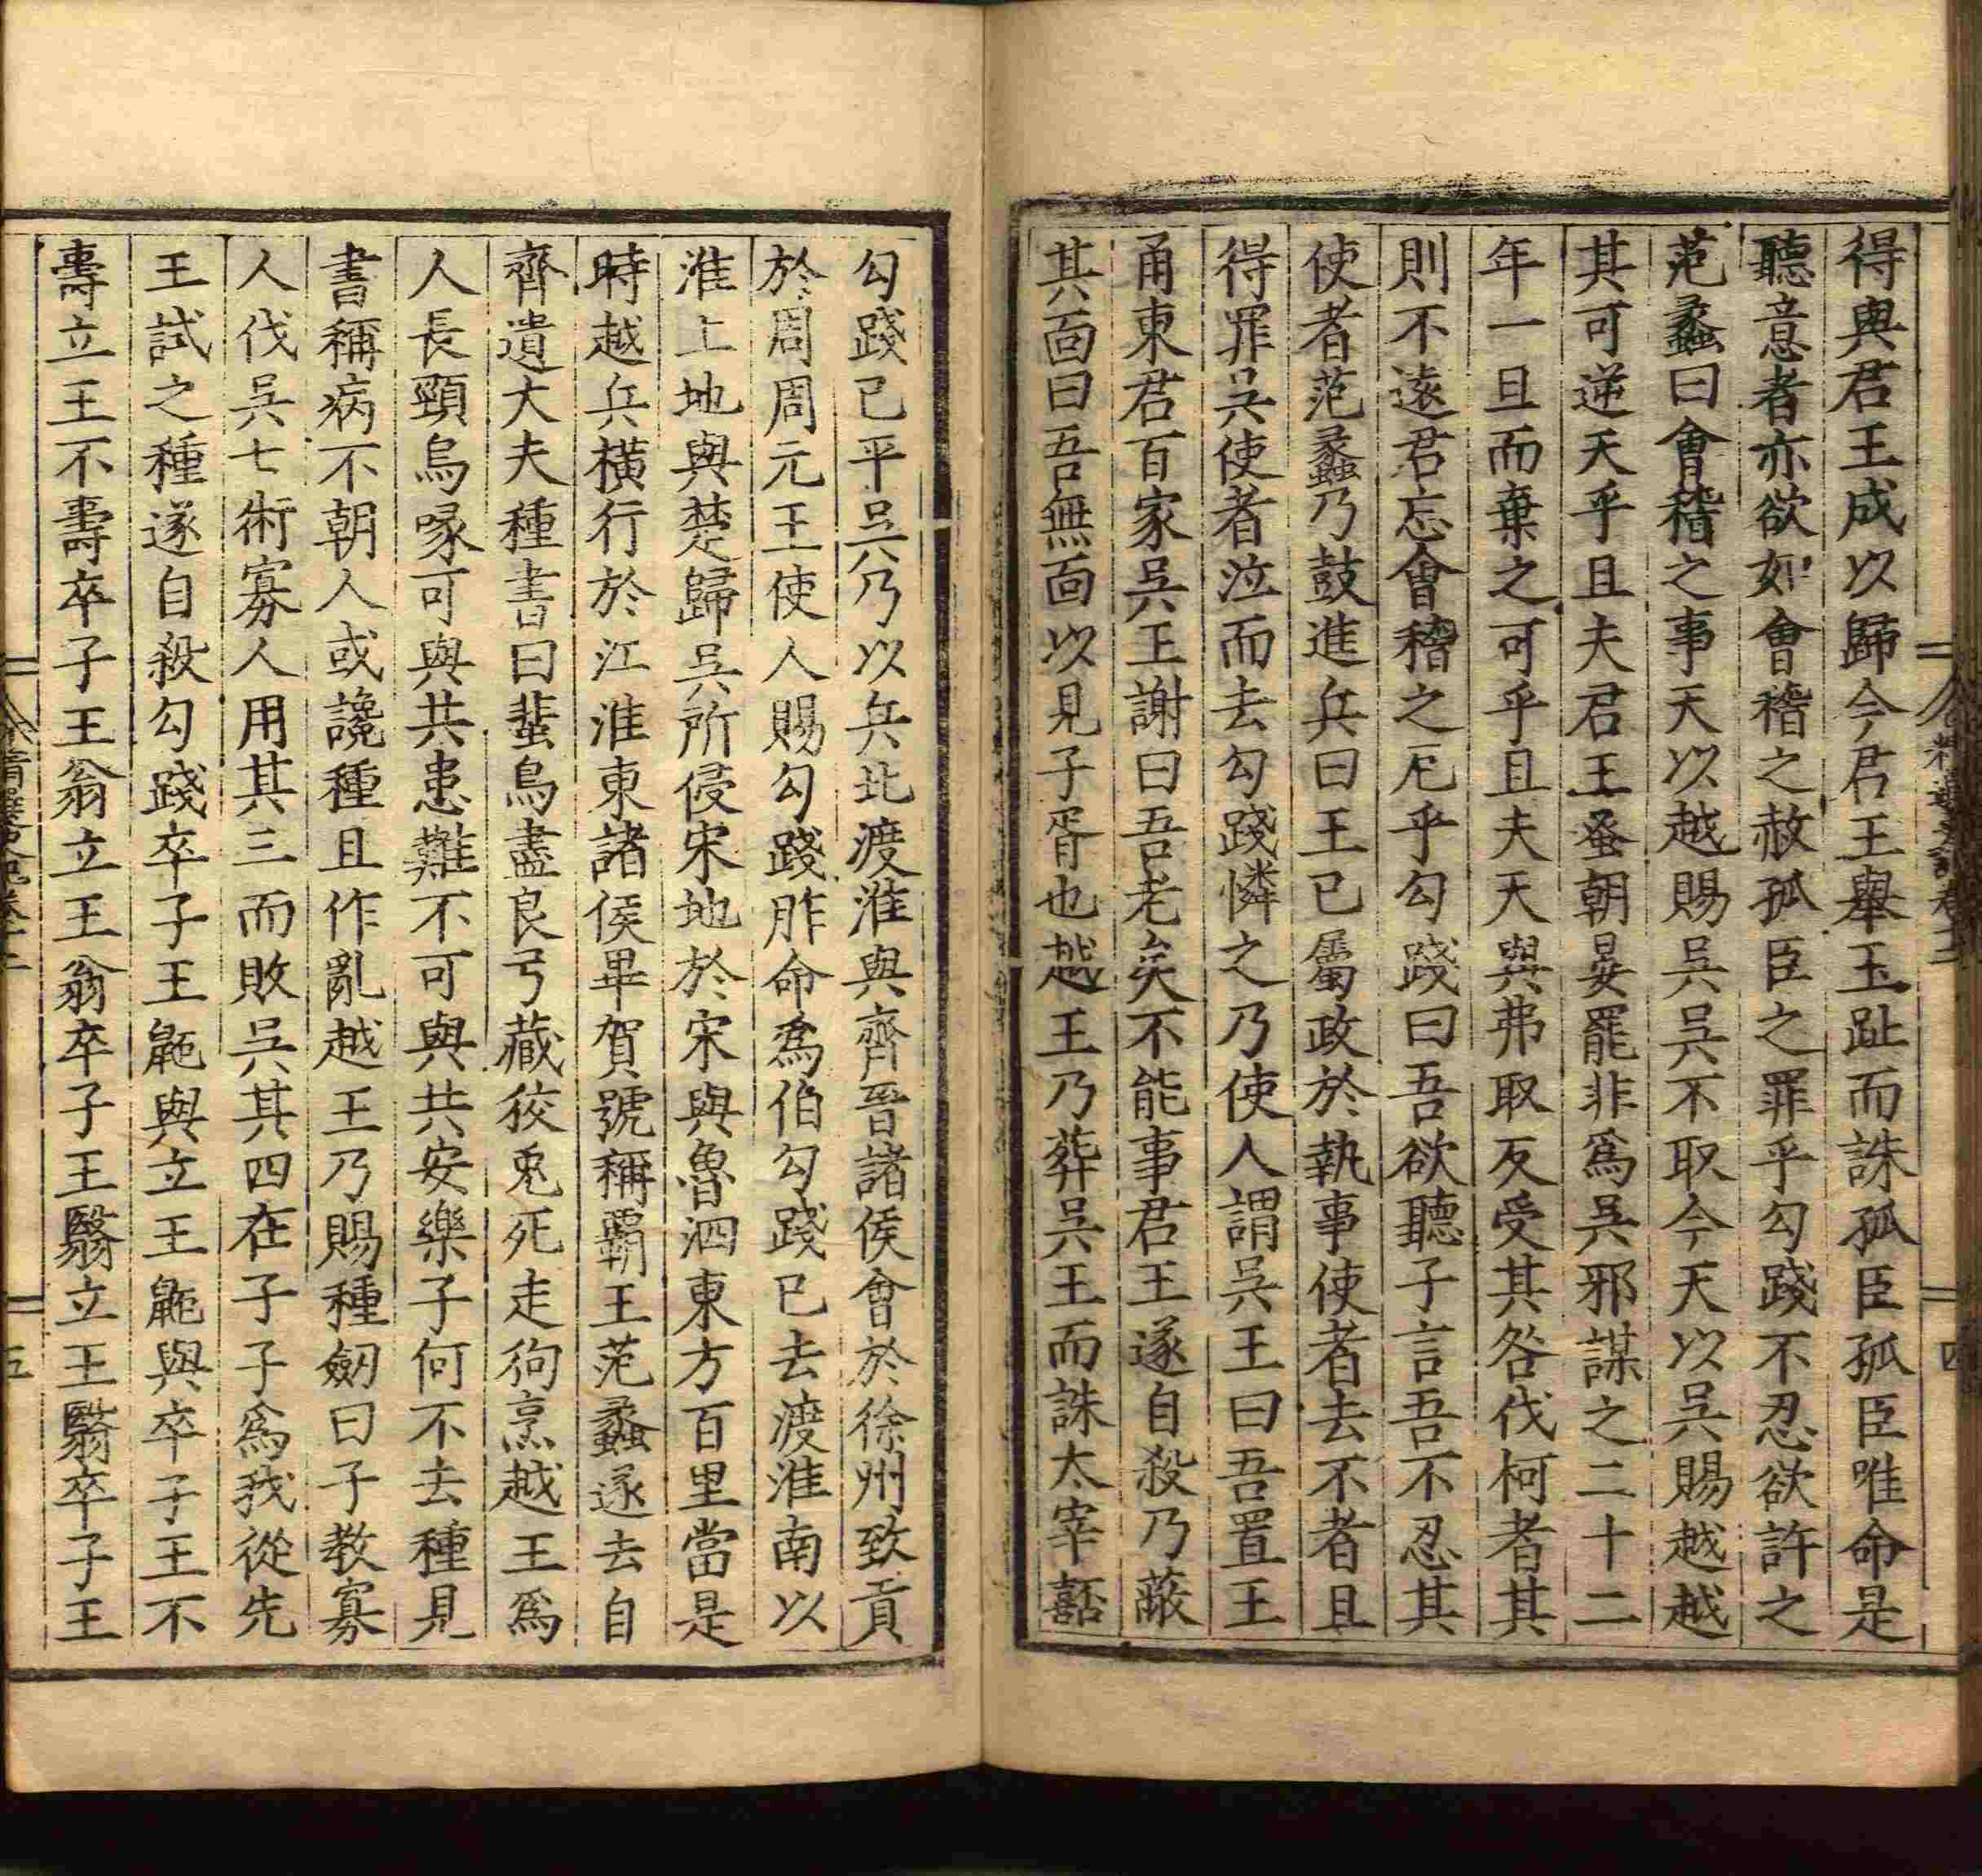 得與君王成以歸今君王舉玉趾而誅孤臣孤臣唯命是
聽意者亦欲如會稽之赦孤臣之罪乎勾踐不忍欲許之
范蠡曰會稽之事天以越賜吳吳不取今天以吳賜越越
其可逆天乎且夫君王蚤朝晏罷非爲吳邪謀之二十二
年一旦而棄之可乎且夫天與弗取反受其咎伐柯者其
則不遠君忘會稽之厄乎勾踐曰吾欲聽子言吾不忍其
使者范蠡乃鼓進兵曰王已屬政於執事使者去不者且
得罪吳使者泣而去勾踐憐之乃使人謂吳王曰吾置王
甬東君百家吳王謝曰吾老矣不能事君王遂自殺乃蔽
其面曰吾無面以見子胥也越王乃葬吳王而誅太宰嚭
勾踐已平吳乃以兵北渡淮與齊晉諸侯會於徐州致貢
於周周元王使人賜勾踐胙命爲伯勾踐已去渡淮南以
淮上地與楚歸吳所侵宋地於宋與魯泗東方百里當是
時越兵橫行於江淮東諸侯畢賀號稱霸王范蠡遂去自
齊遺大夫種書曰蜚鳥盡良弓藏狡兎死走狗烹越王爲
人長頸烏喙可與共患難不可與共安樂子何不去種見
書稱病不朝人或讒種且作亂越王乃賜種劒曰子教寡
人伐吳七術寡人用其三而敗吳其四在子子爲我從先
王試之種遂自殺勾踐卒子王鼫與立王鼫與卒子王不
壽立王不壽卒子王翁立王翁卒子王翳立王翳卒子王
五